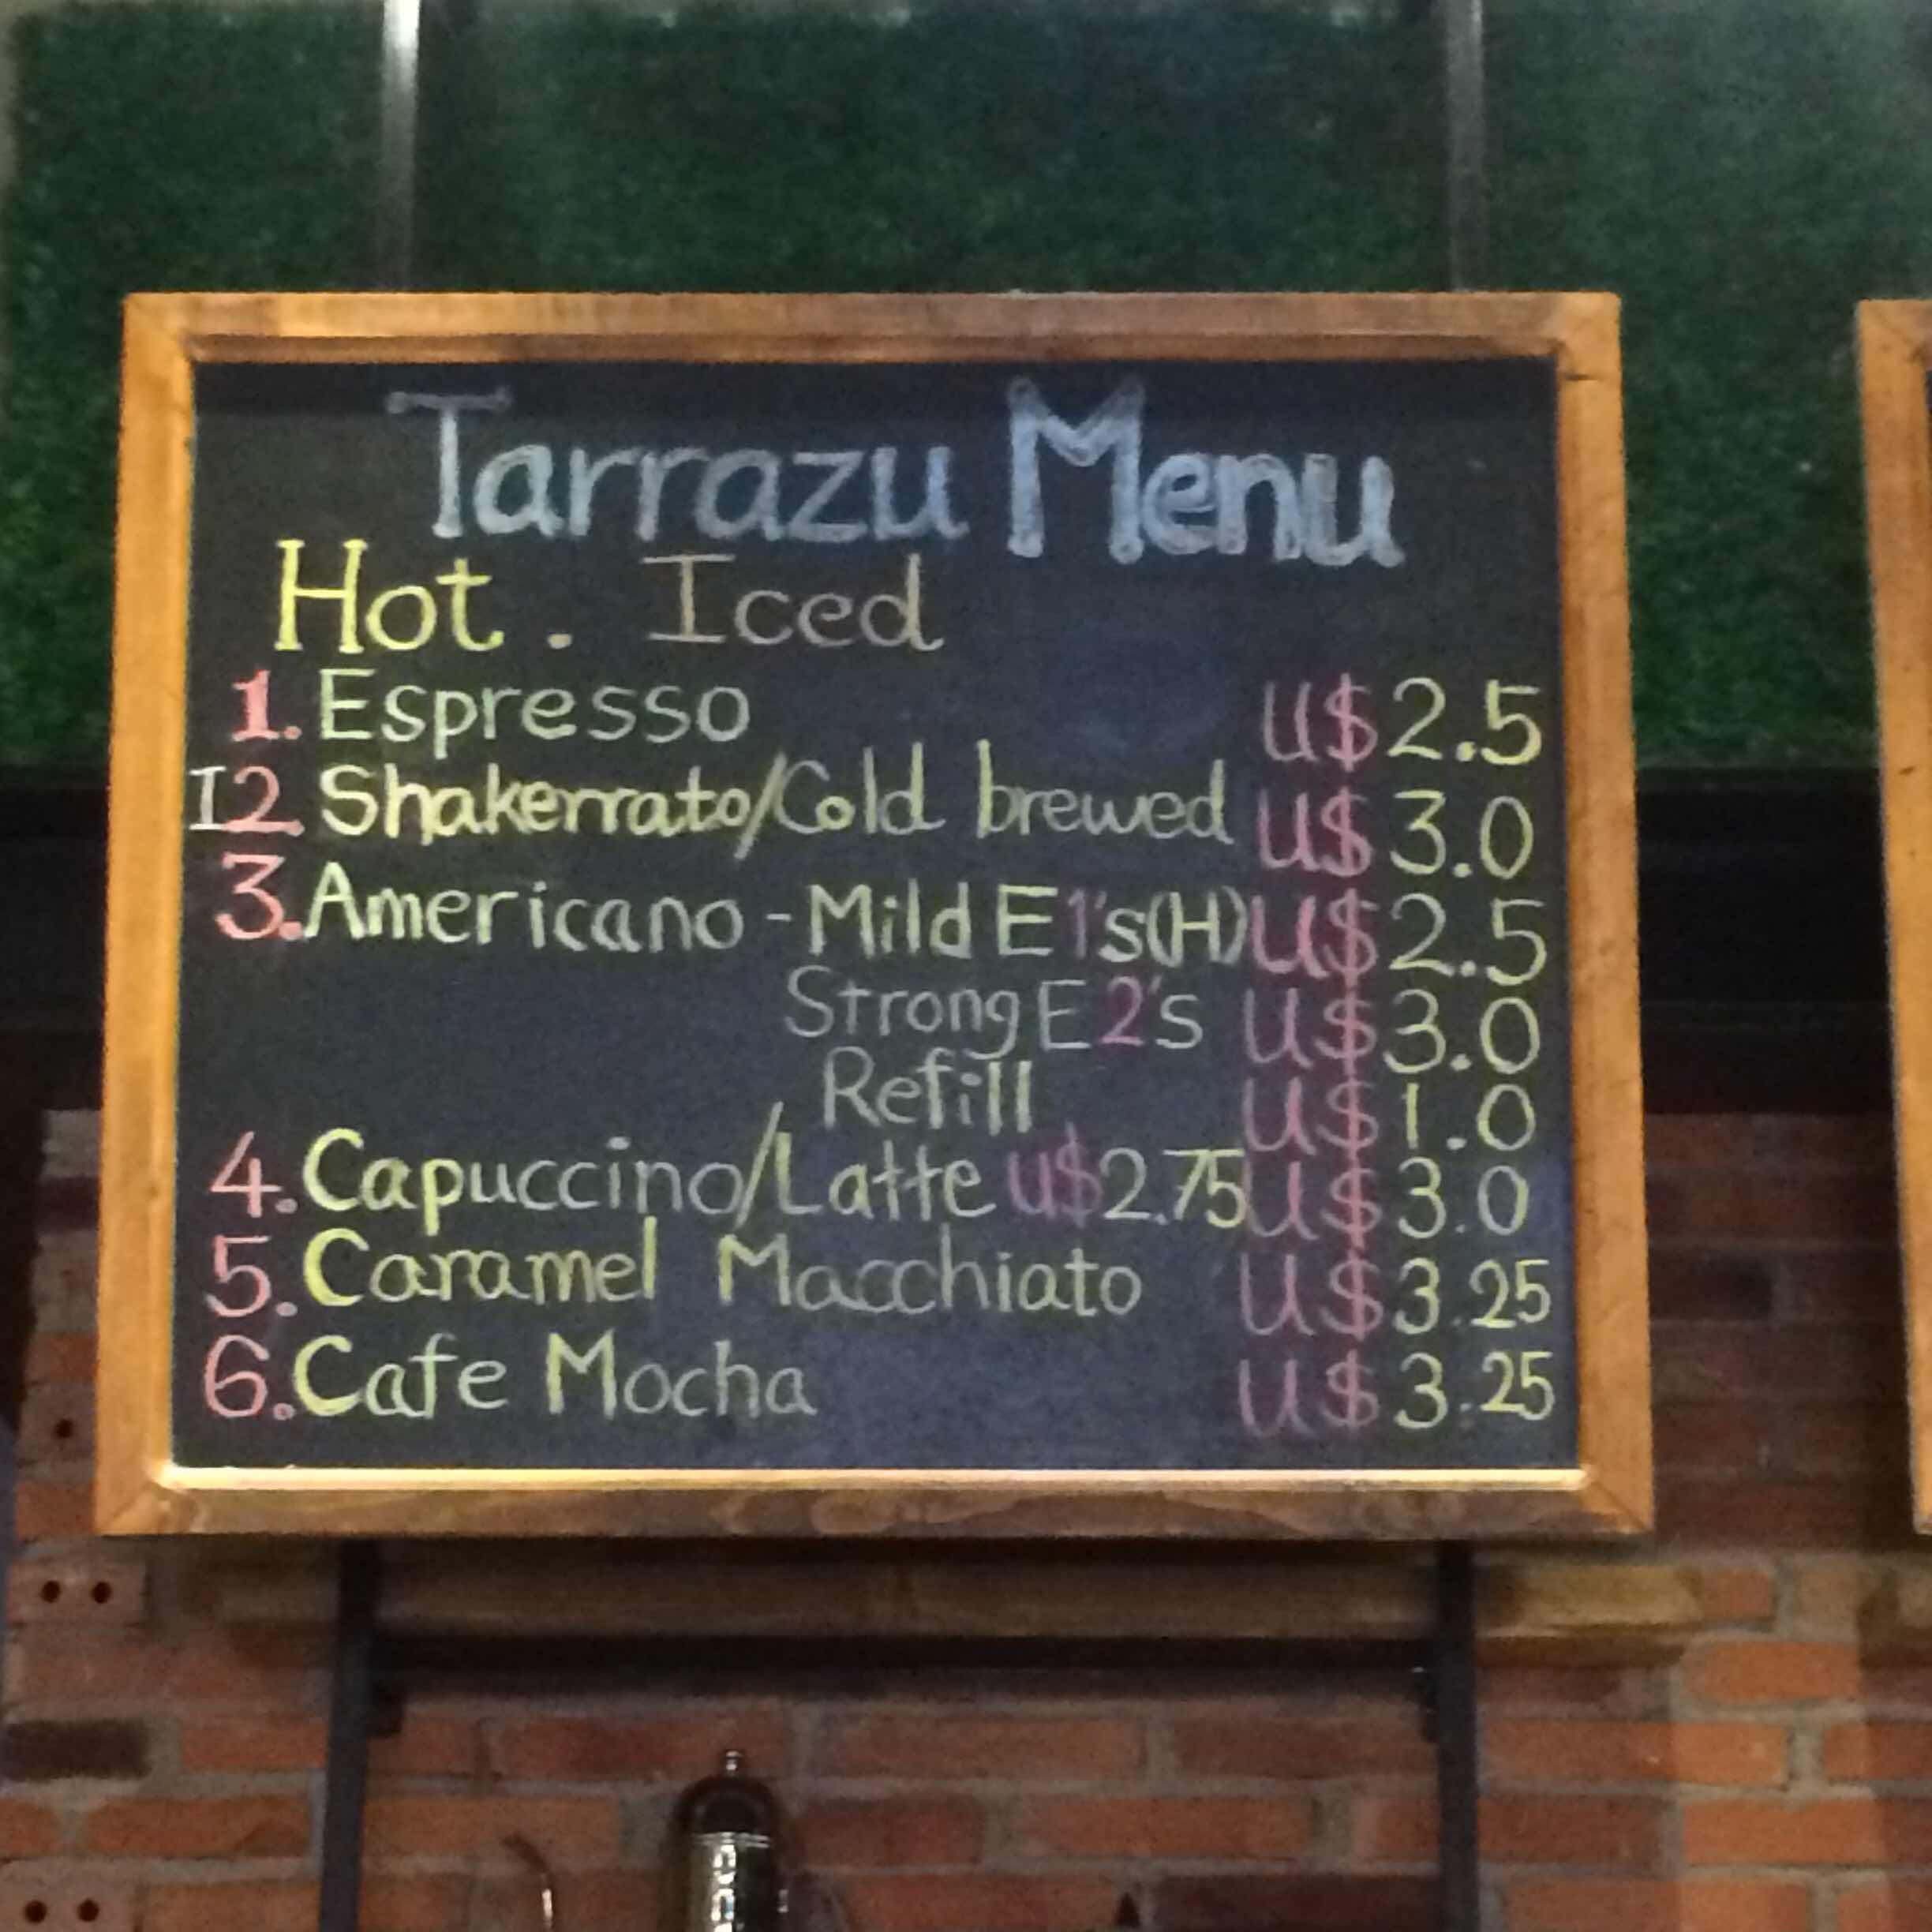 Tarrazu Menu
Hot . Iced
1. Espresso U$ 2.5
I2. Shakerrato/Cold brewed U$ 3.0
3. Americano - Mild E 1's(H) U$ 2.5
Strong E 2's U$ 3.0
Refill U$ 1.0
4. Capuccino/Latte U$2.75 U$ 3.0
5. Caramel Macchiato U$ 3.25
6. Cafe Mocha U$ 3.25